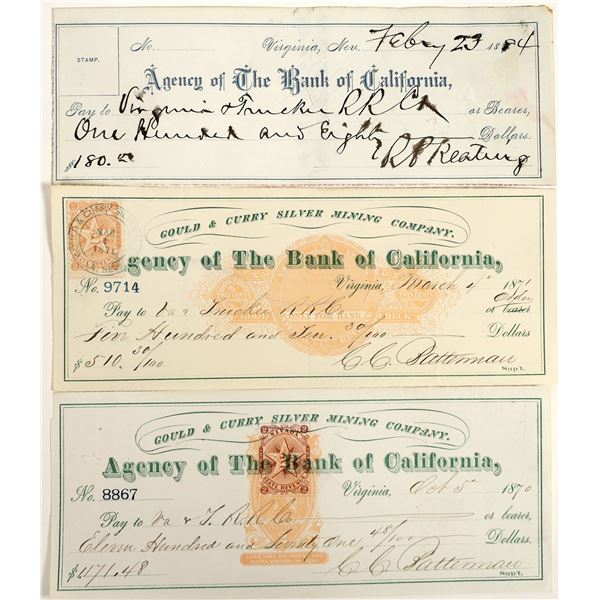 No. Virginia, Nev. Febry 23 1884
STAMP.
Agency of The Bank of California,
Pay to Virginia & Truckee R.R. Co or Bearer,
One Hundred and Eighty Dollars.
$180.00 R P Keating
GOULD & CURRY SILVER MINING COMPANY.
Agency of The Bank of California,
No. 9714 Virginia, March 4 1871
Pay to Va & Truckee R.R. Co or bearer Order
Five Hundred and Ten 30/100 Dollars
$510.30/100 C. C. Batterman
Sup't.
GOULD & CURRY SILVER MINING COMPANY.
NEVADA
STATE REVENUE
Agency of The Bank of California,
No. 8867 Virginia, Oct 5th 1870
Pay to Va & T. R.R. Co or bearer,
Eleven Hundred and Seventy One 48/100 Dollars.
$1171.48 C. C. Batterman
Sup't.